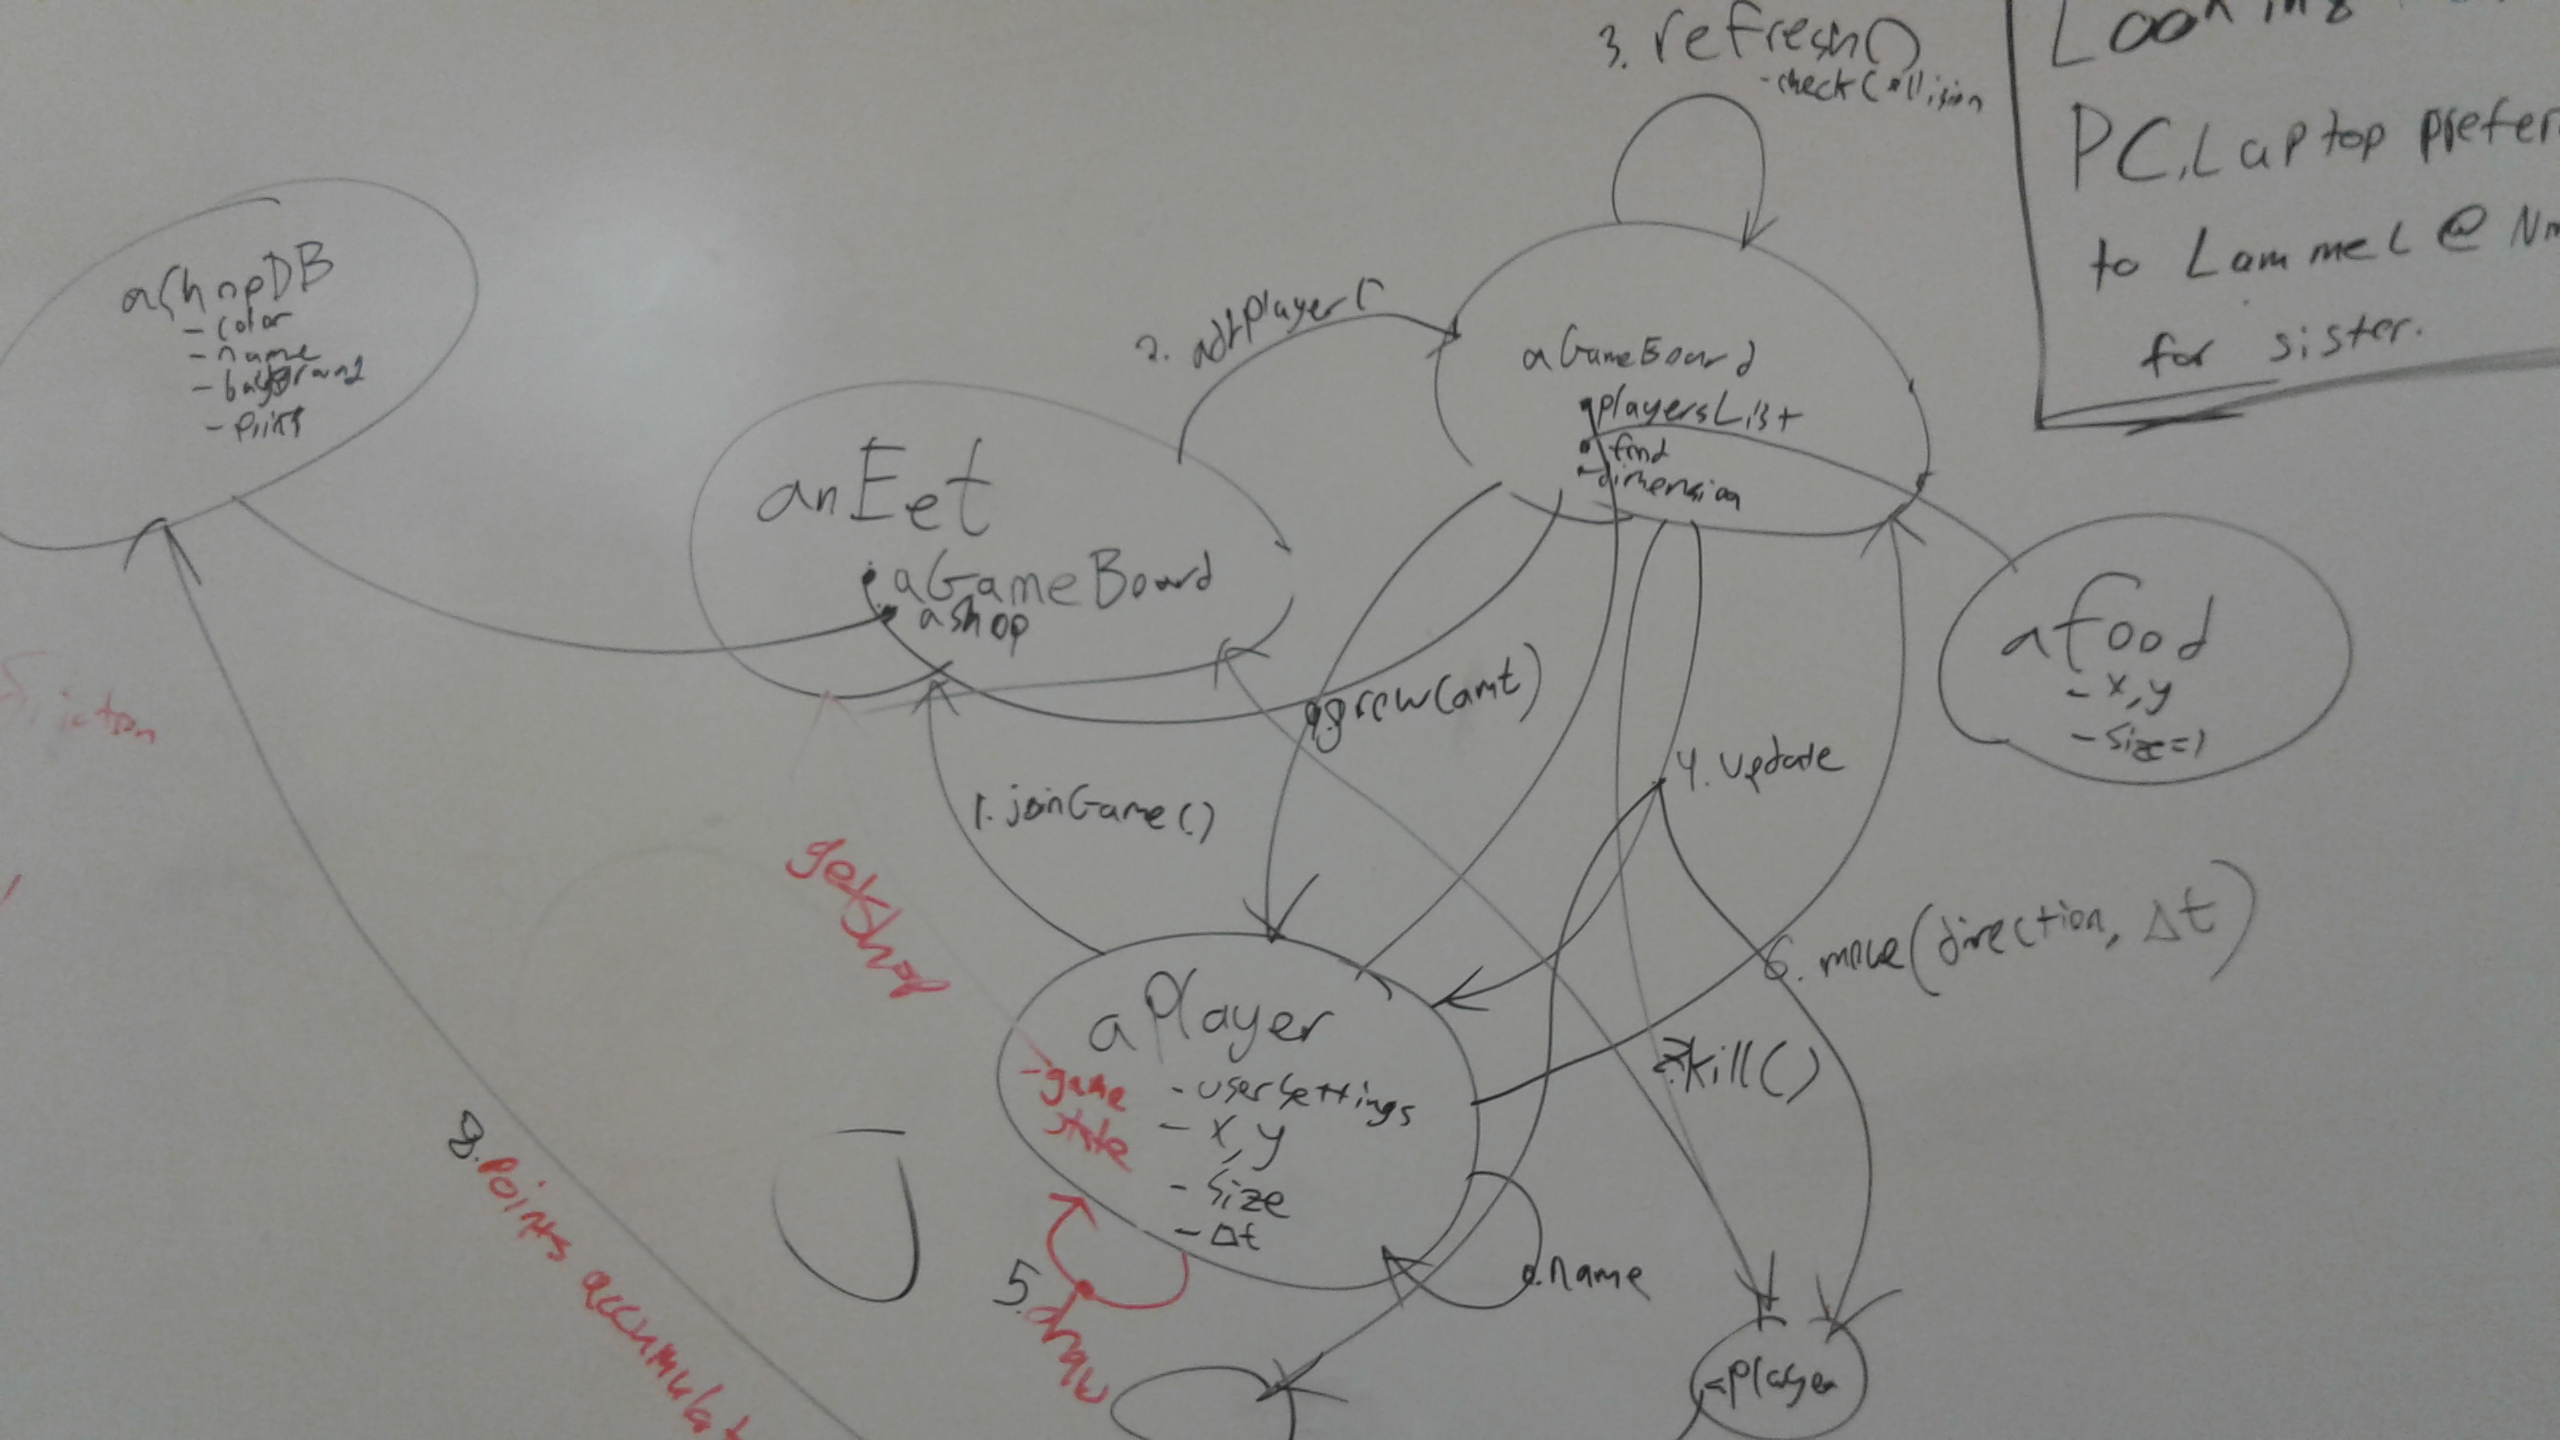 3. refresh()
-checkCollision
PC, Laptop prefer
to Lammel @ Nm
for sister.
ashopDB
- color
- name
- background
2. addPlayer(
aGameBoard
playersList
dimension
anEet
aGameBoard
ashop
afood
- x,y
- size=1
9.grow(amt)
4. update
1. joinGame()
getShop
6. move(direction, Δt)
aPlayer
- game
state
- userSettings
- x,y
- size
- Δt
kill()
8. Points accumulat
5. draw
name
aplayer